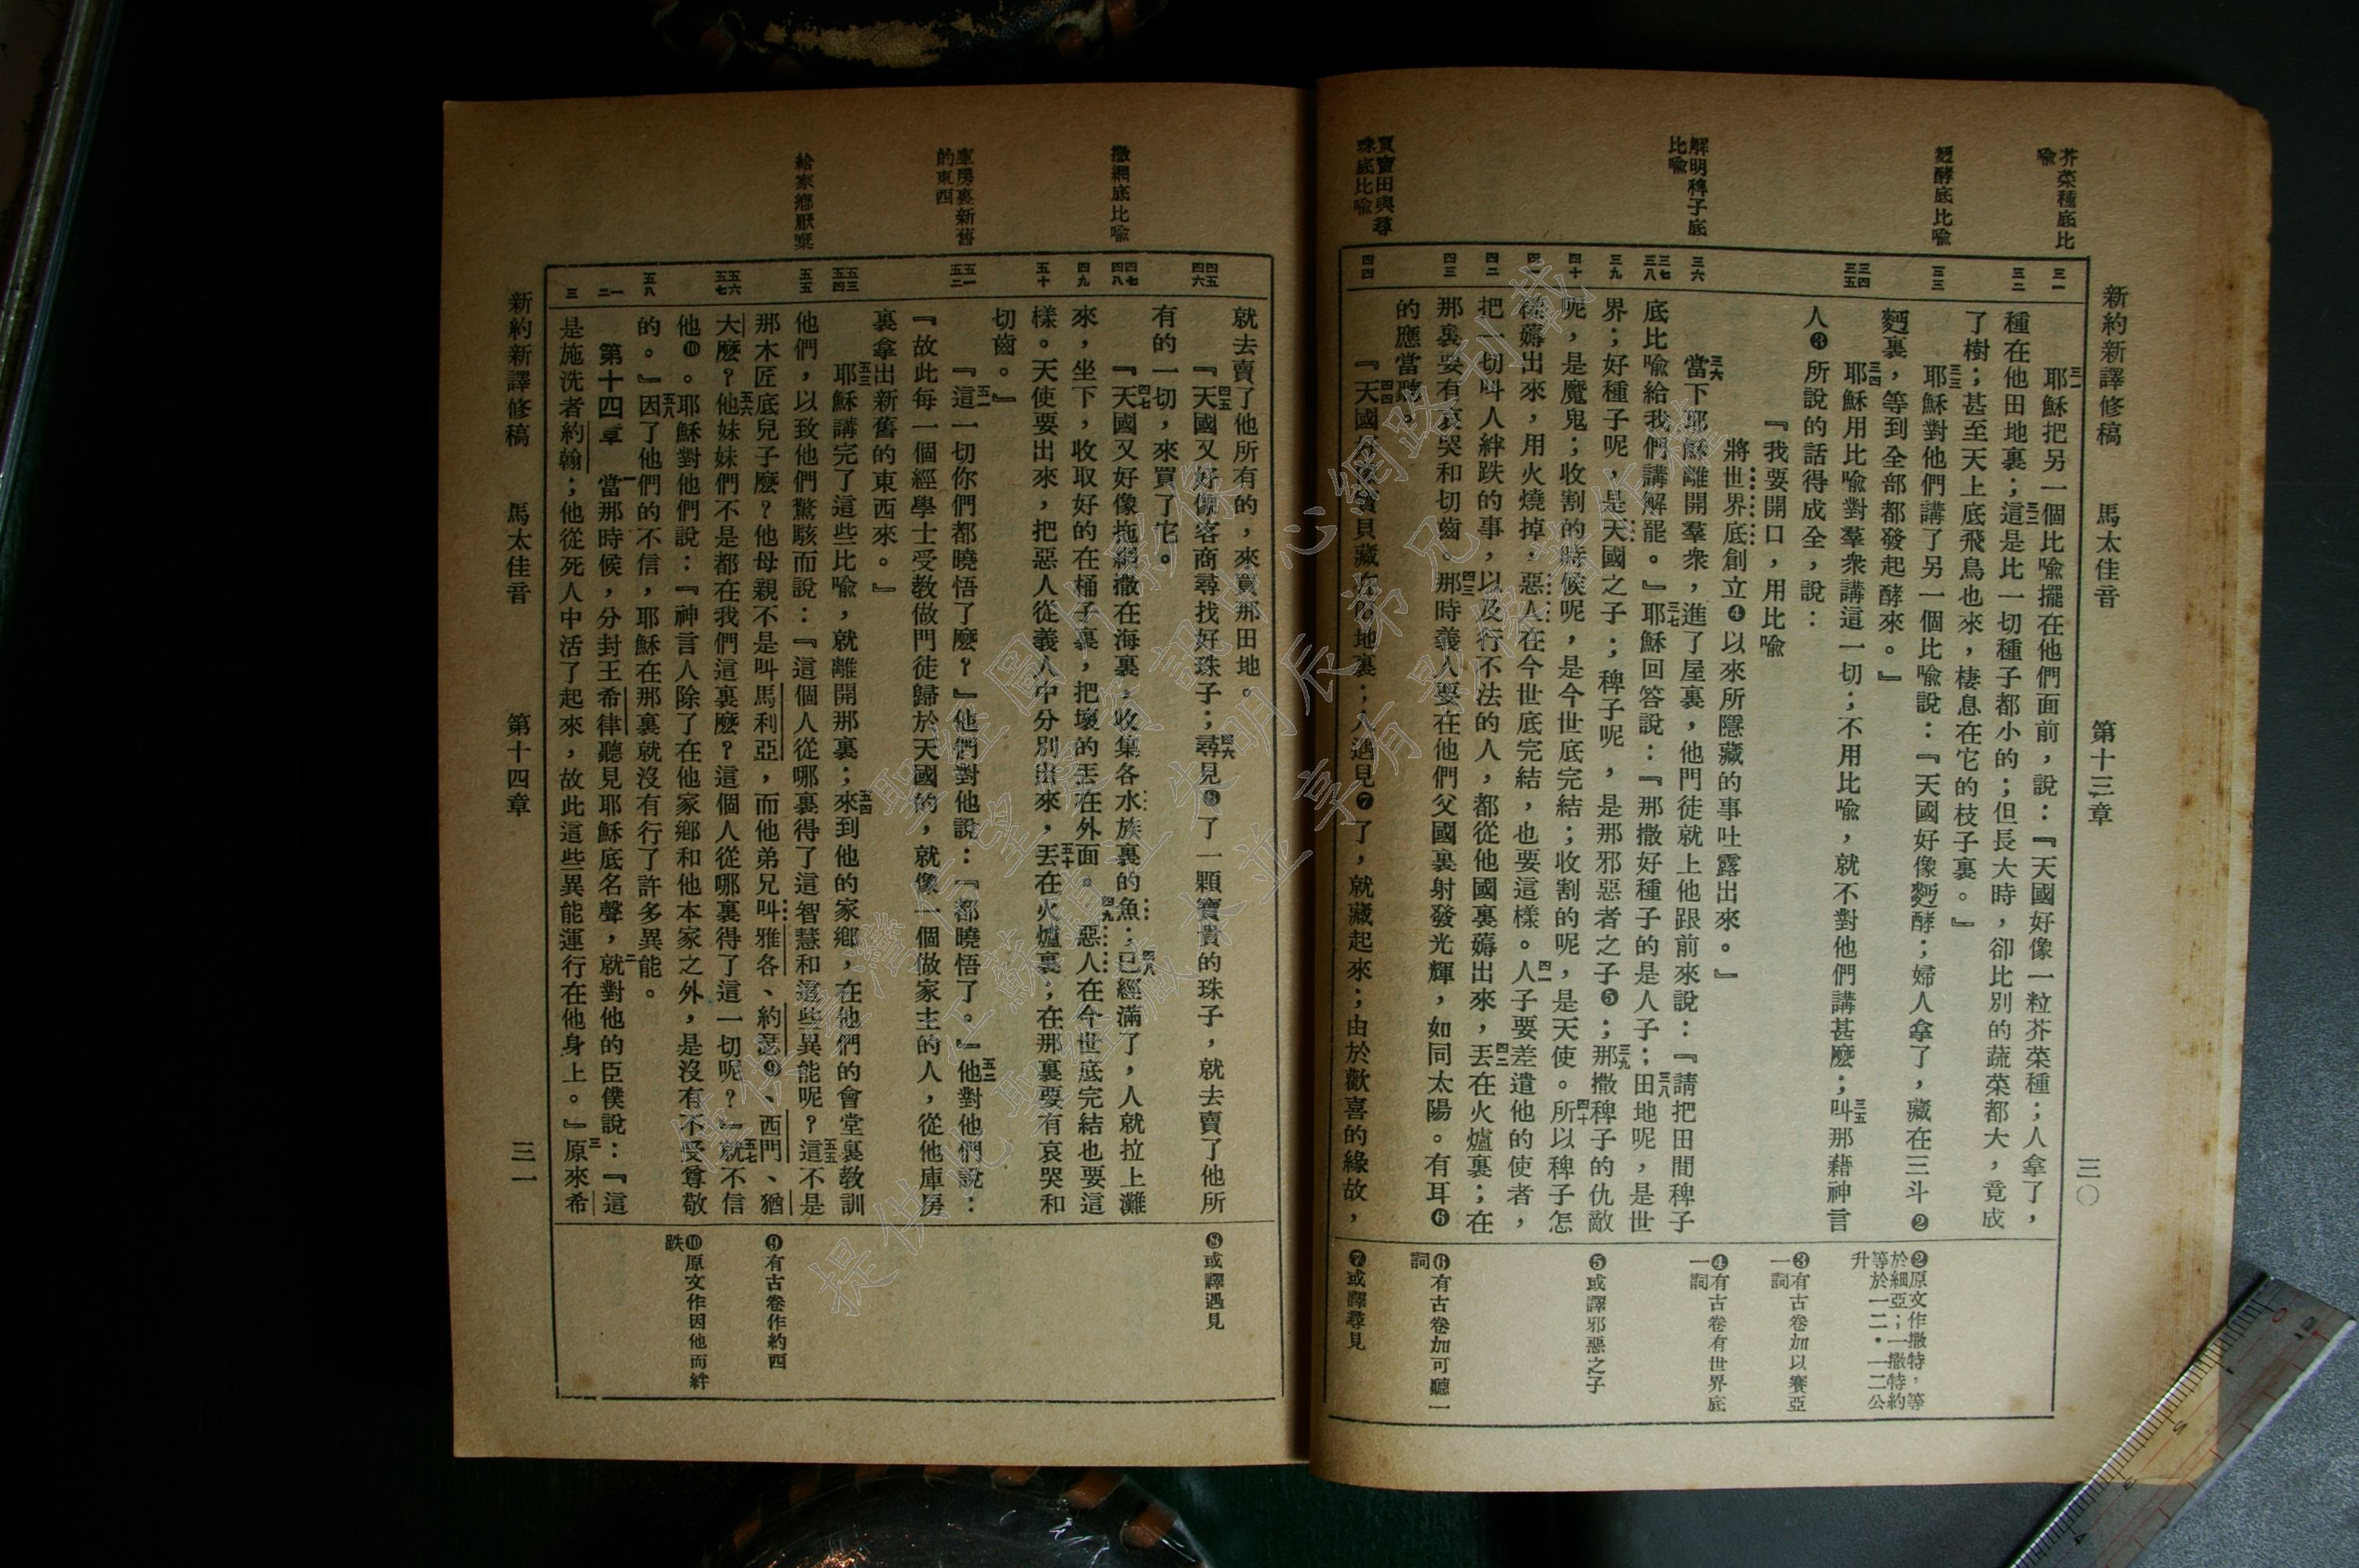 新約新譯修稿 馬太佳音 第十三章 三〇
芥菜種底比
喩
麪酵底比喩
解明稗子底
比喩
買寶田與尋
珠底比喩
三一
三二
三三
三四
三五
三六
三七
三八
三九
四十
四一
四二
四三
四四
三一耶穌把另一個比喩擺在他們面前，說：『天國好像一粒芥菜種；人拿了，
種在他田地裏；三二這是比一切種子都小的；但長大時，卻比別的蔬菜都大，竟成
了樹；甚至天上底飛鳥也來，棲息在它的枝子裏。』
三三耶穌對他們講了另一個比喩說：『天國好像麪酵；婦人拿了，藏在三斗❷
麪裏，等到全部都發起酵來。』
三四耶穌用比喩對羣衆講這一切；不用比喩，就不對他們講甚麽；三五叫那藉神言
人❸所說的話得成全，說：
『我要開口，用比喩
將世界底創立❹以來所隱藏的事吐露出來。』
三六當下耶穌離開羣衆，進了屋裏，他門徒就上他跟前來說：『請把田間稗子
底比喩給我們講解罷。』三七耶穌回答說：『那撒好種子的是人子；三八田地呢，是世
界；好種子呢，是天國之子；稗子呢，是那邪惡者之子❺；三九那撒稗子的仇敵
呢，是魔鬼；收割的時候呢，是今世底完結；收割的呢，是天使。四十所以稗子怎
樣薅出來，用火燒掉，惡人在今世底完結，也要這樣。四一人子要差遣他的使者，
把一切叫人絆跌的事，以及行不法的人，都從他國裏薅出來，四二丟在火爐裏；在
那裏要有哀哭和切齒。四三那時義人要在他們父國裏射發光輝，如同太陽。有耳❻
的應當聽。
四四『天國好像寶貝藏在田地裏；人遇見❼了，就藏起來；由於歡喜的緣故，
❷原文作撒特，等
於細亞；一撒特約
等於一二·一二公
升
❸有古卷加以賽亞
一詞
❹有古卷有世界底
一詞
❺或譯邪惡之子
❻有古卷加可聽一
詞
❼或譯尋見
撒網底比喩
庫房裏新舊
的東西
給家鄉厭棄
四五
四六
四七
四八
四九
五十
五一
五二
五三
五四
五五
五六
五七
五八
一
二
三
就去賣了他所有的，來買那田地。
四五『天國又好像客商尋找好珠子；四六尋見❽了一顆寶貴的珠子，就去賣了他所
有的一切，來買了它。
四七『天國又好像拖網撒在海裏，收集各水族裏的魚；四八已經滿了，人就拉上灘
來，坐下，收取好的在桶子裏，把壞的丟在外面。四九惡人在今世底完結也要這
樣。天使要出來，把惡人從義人中分別出來，五十丟在火爐裏；在那裏要有哀哭和
切齒。』
五一『這一切你們都曉悟了麽？』他們對他說：『都曉悟了。』五二他對他們說：
『故此每一個經學士受教做門徒歸於天國的，就像一個做家主的人，從他庫房
裏拿出新舊的東西來。』
五三耶穌講完了這些比喩，就離開那裏；五四來到他的家鄉，在他們的會堂裏教訓
他們，以致他們驚駭而說：『這個人從哪裏得了這智慧和這些異能呢？五五這不是
那木匠底兒子麽？他母親不是叫馬利亞，而他弟兄叫雅各、約瑟❾、西門、猶
大麽？五六他妹妹們不是都在我們這裏麽？這個人從哪裏得了這一切呢？』五七就不信
他❿。耶穌對他們說：『神言人除了在他家鄉和他本家之外，是沒有不受尊敬
的。』五八因了他們的不信，耶穌在那裏就沒有行了許多異能。
第十四章 一當那時候，分封王希律聽見耶穌底名聲，二就對他的臣僕說：『這
是施洗者約翰；他從死人中活了起來，故此這些異能運行在他身上。』三原來希
❽或譯遇見
❾有古卷作約西
❿原文作因他而絆
跌
新約新譯修稿 馬太佳音 第十四章 三一